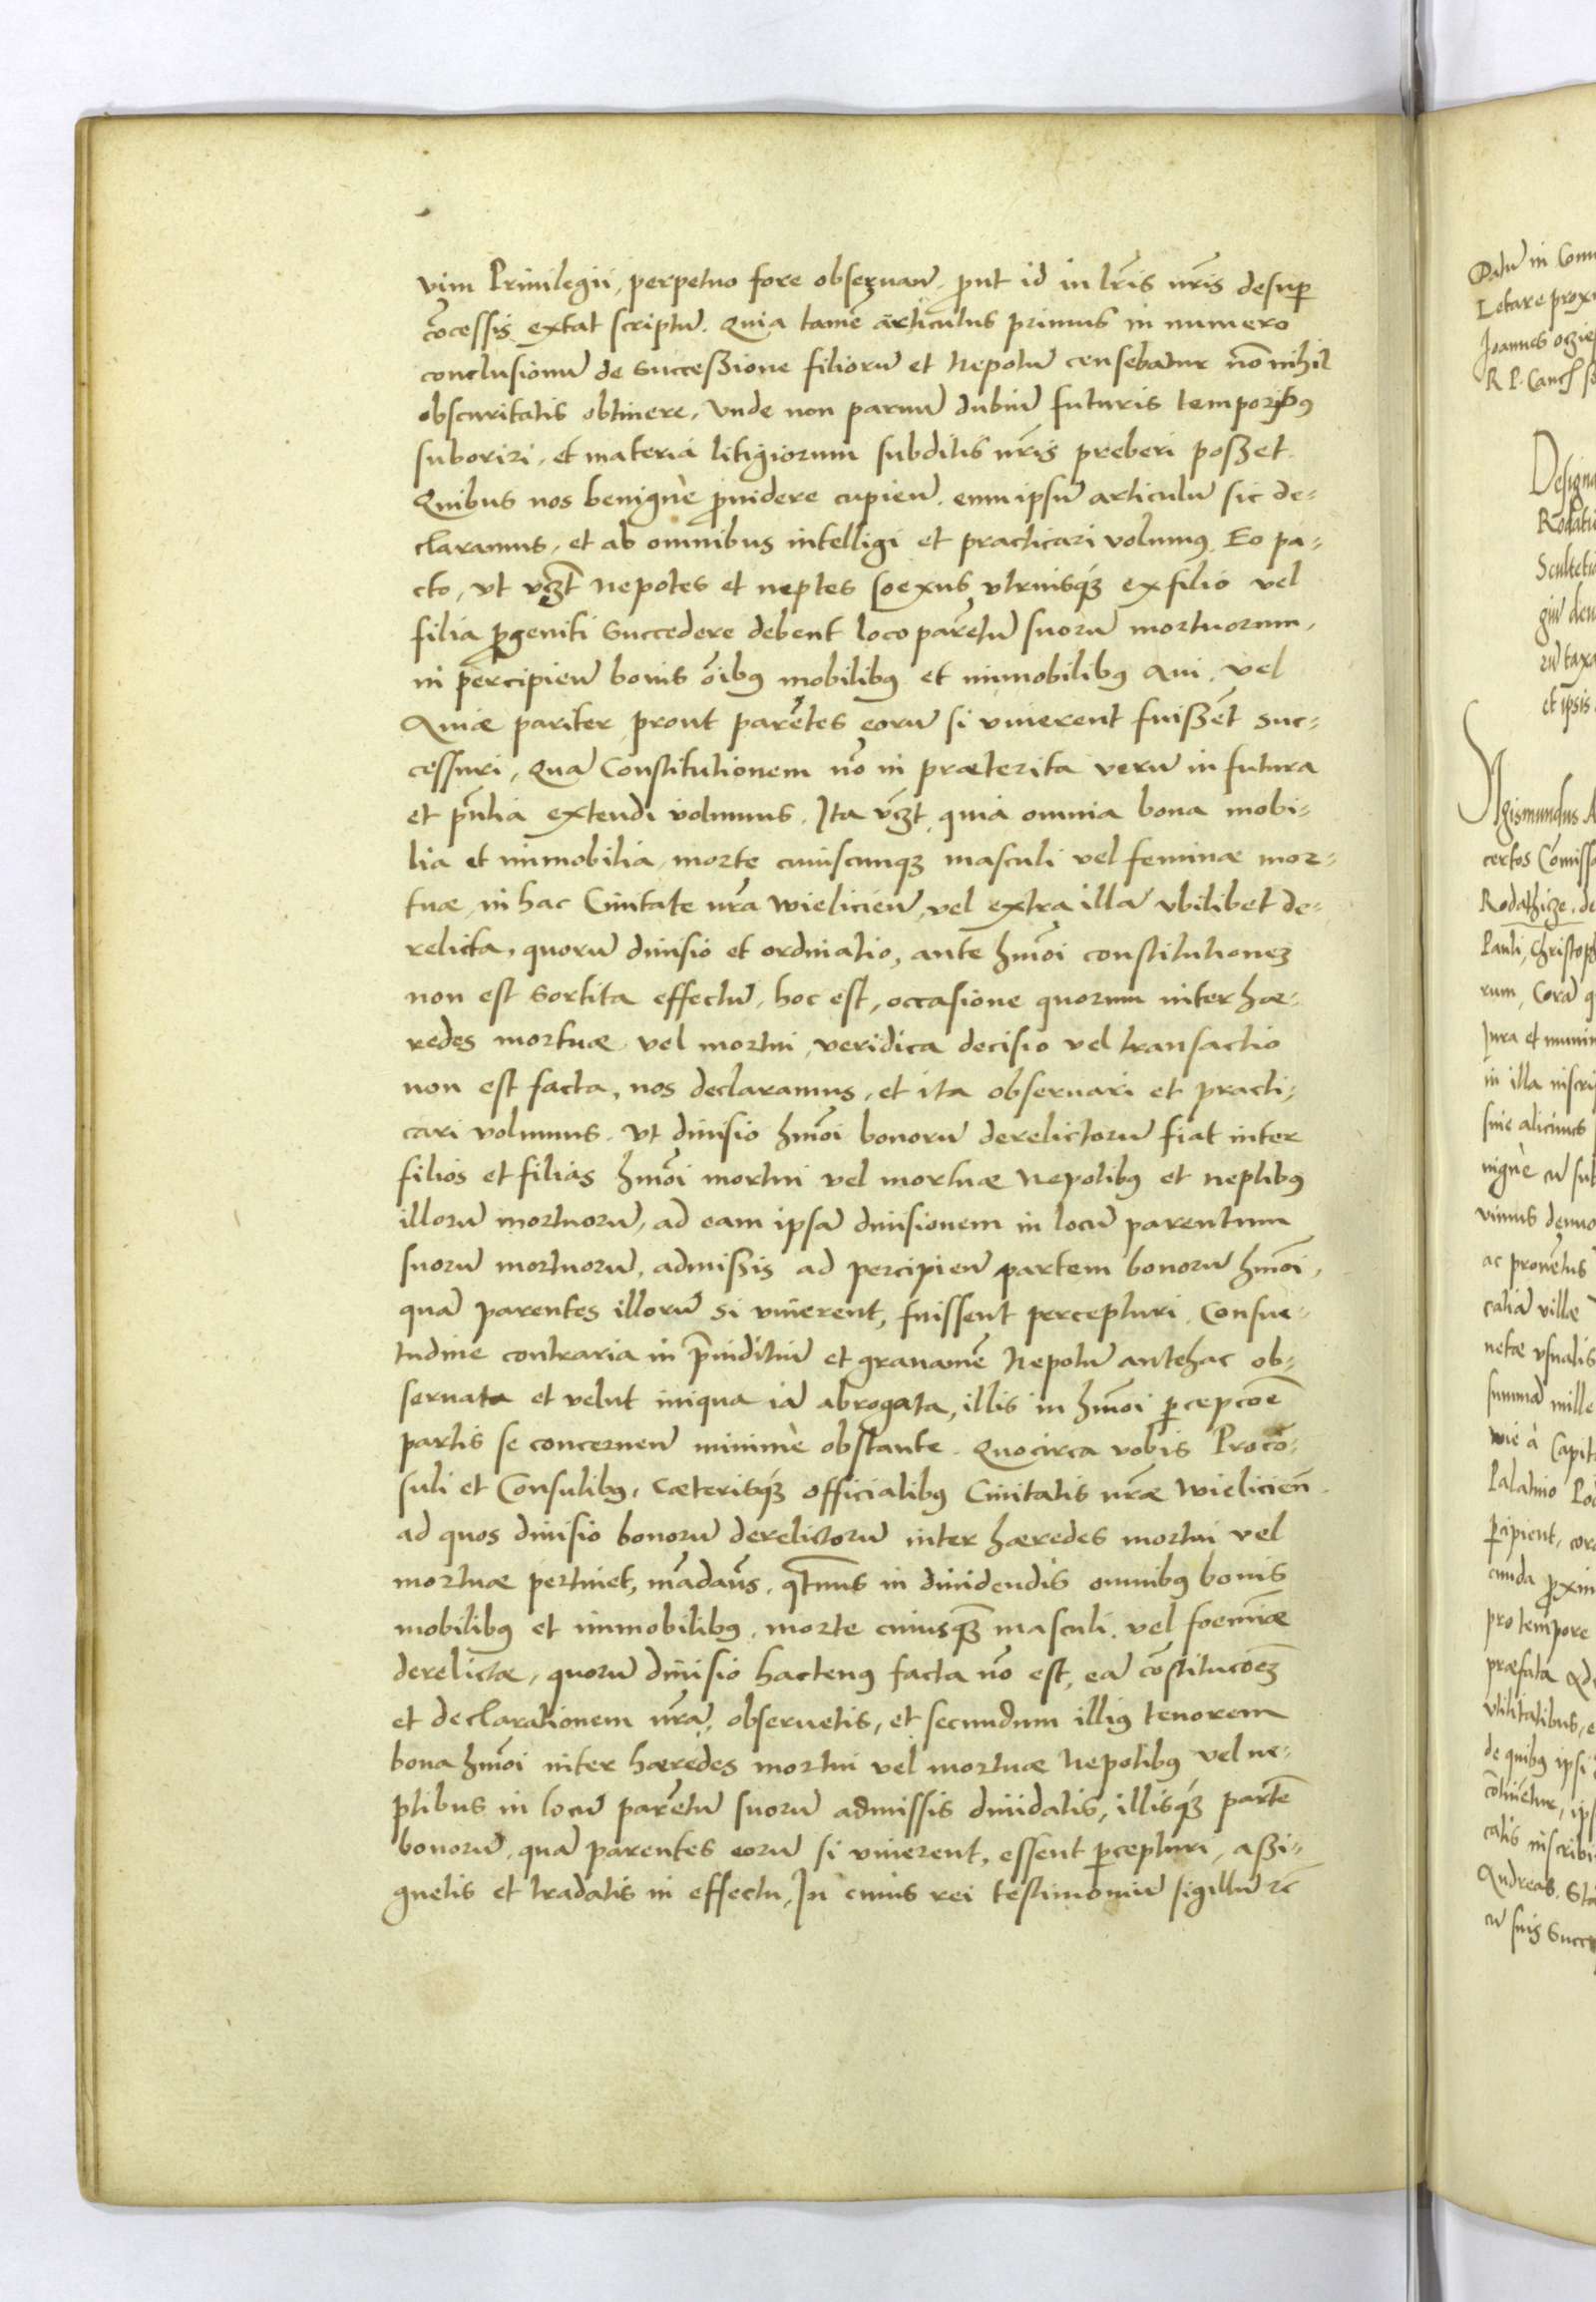 vim Priuilegii, perpetuo fore obseruan̄. p̄ut id in lr̄is nr̄is desup̲
cōcessis extat scriptū. Quia tamē articulus primus in numero
conclusionū de Succeßione filiorū et Nepotū censebatur nō nihil
obscuritatis obtinere, Vnde non paruū dubiū futuris temporibꝰ
suboriri, et materiā litigiorum subditis nr̄is preberi poßet.
Quibus nos benignè p̄uidere cupien̄. eum ipsū articulū sic de=
claramus, et ab omnibus intelligi et practicari volumꝰ. Eo pa=
cto, vt vꝫt nepotes et neptes soexus vtriusqꝫ ex filio vel
filia p̄geniti Succedere debent loco parētū suorū mortuorum,
in percipien̄ bonis oībꝰ mobilibꝰ et immobilibꝰ Aui, vel
Auiæ pariter prout parētes eorū si viuerent fuißēt suc=
cessuri, Quā Constitutionem nō in præterita verū in futura
et pn̄tia extendi volumus. Ita vꝫt, quia omnia bona mobi=
lia et immobilia, morte cuiuscunqꝫ masculi vel feminæ mor=
tuæ, in hac Ciuitate nr̄a Wielicien̄, vel extra illā vbilibet de=
relicta, quorū diuisio et ordinatio, ante hmōi constitutioneꝫ
non est sortita effectū, hoc est, occasione quorum inter hæ=
redes mortuæ vel mortui, veridica decisio vel transactio
non est facta, nos declaramus, et ita obseruari et practi=
cari volumus. Vt diuisio hmōi bonorū derelictorū fiat inter
filios et filias hmōi mortui vel mortuæ Nepotibꝰ et neptibꝰ
illorū mortuorū, ad eam ipsā diuisionem in locū parentum
suorū mortuorū, admißis ad percipien̄ partem bonorū hmōi,
quā parentes illorū si viuerent, fuissent percepturi. Consue=
tudine contraria in p̄iuditiū et grauamē Nepotū antehac ob=
seruata et velut iniqua iā abrogata, illis in hmōi p̲cepcōē
partis se concernen̄ minimè obstante. Quocirca vobis Procō=
suli et Consulibꝰ, Cæterisqꝫ officialibꝰ Ciuitatis nr̄æ Wielicien̄.
ad quos diuisio bonorū derelictorū inter hæredes mortui vel
mortuæ pertinet, mādam̄s, qt̄nus in diuidendis omnibꝰ bonis
mobilibꝰ et immobilibꝰ, morte cuiusqꝫ masculi, vel foemīæ
derelictæ, quorū diuisio hactenꝰ facta nō est, eā cōstitucōeꝫ
et declarationem nr̄ā, obseruetis, et secundum illiꝰ tenorem
bona hmōi inter hæredes mortui vel mortuæ Nepotibꝰ vel ne=
ptibus in locū parētū suorū admissis diuidatis, illisqꝫ partē
bonorū, quā parentes eorū si viuerent, essent p̲cepturi, aßi=
gnetis et tradatis in effectu, In cuius rei testimoniū sigillū ꝛc̄
Datū in Com
Letare prox
Joannes oczie
R. P. Canc
Design
Rodatic
Scultetiæ
giū den
rū taxa
et ipsis
Sigismundus A
certos Comiss
Rodathize, de
Pauli, Christoph
rum, Corā q
Jura et munim
in illa inscri
sine alicuius
nignè cū sub
vimus denuo
ac prouētus
caliā villæ
netæ vsualis
summā mille
wie à Capit
Palatino Pod
p̲cipient, cor
cunda p̄xim
pro tempore
præfata Qd
vtilitatibus, e
de quibꝰ ipsi
cōtinētur, ips
catis inscribi
Andreas, Sta
cū suis Succe